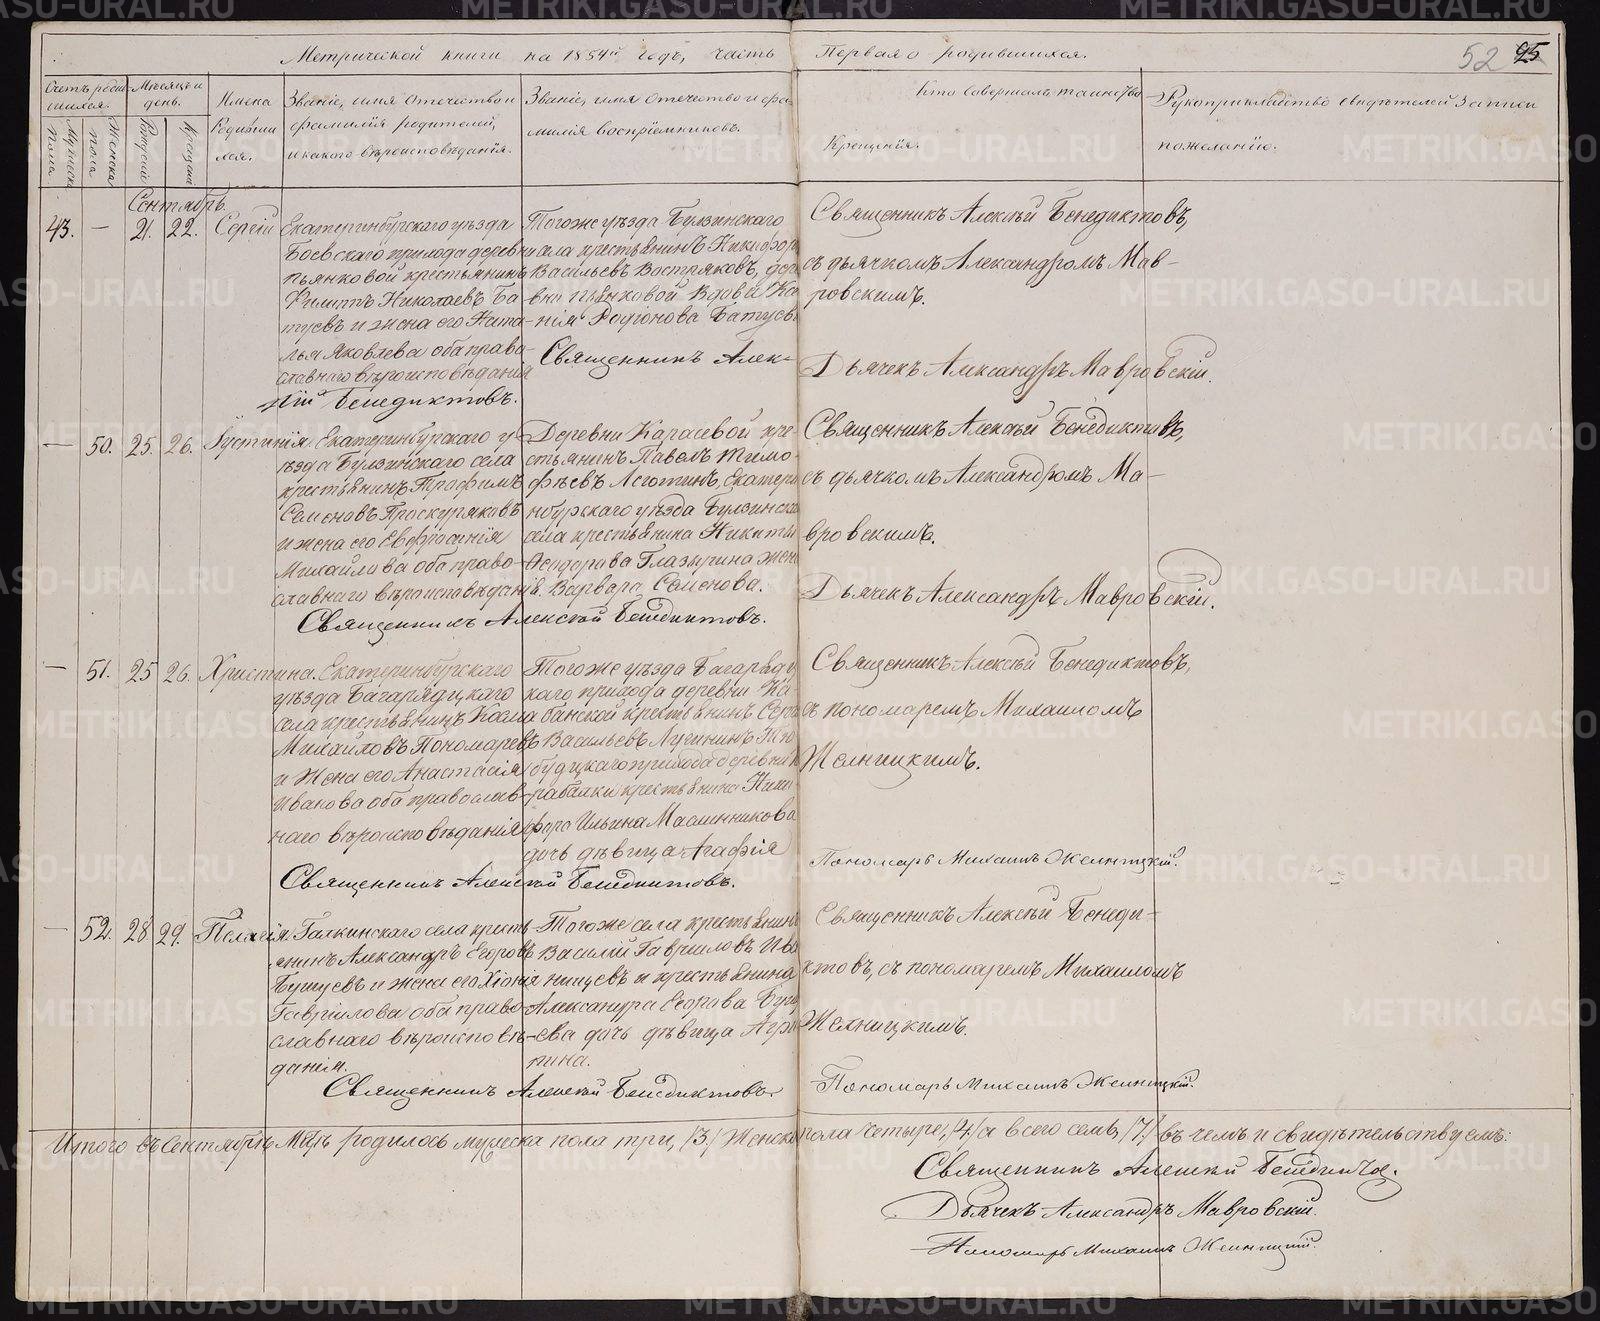 Метрической книги на 1854й годъ, часть Первая о родившихся.
52 95
Счетъ родившихся.
Мужеска пола
Женска пола
Мѣсяцъ и день.
Рожденія
Крещенія
Имена Родившихся.
Званіе, имя отечество и
фамилія родителей,
и какого вѣроисповѣданія.
Званіе, имя отечество и фа-
милія воспріемниковъ.
Кто совершалъ таинство
Крещенія.
Рукоприкладство свидѣтелей записи
по желанію.
Сентябрь.
43. — 21. 22. Сергій
Екатеринбургскаго уѣзда
Боевскаго прихода деревни
Пьянковой крестьянинъ
Филиппъ Николаевъ Ба-
туевъ и жена его Ната-
лья Яковлева оба право-
славнаго вѣроисповѣданія
Тогоже уѣзда Булзинскаго
села крестьянинъ Никифоръ
Васильевъ Востряковъ, дере
вни Пьянковой вдова Ксе
нія Родіонова Батуева
Священникъ Алек-
сій Бенедиктовъ.
Священникъ Алексѣй Бенедиктовъ,
съ дьячкомъ Александромъ Мав-
ровскимъ.
Дьячекъ Александръ Мавровскій.
— 50. 25. 26. Іустинія.
Екатеринбургскаго у-
ѣзда Булзинскаго села
крестьянинъ Трофимъ
Семеновъ Проскуряковъ
и жена его Евфросинія
Михайлова оба право-
славнаго вѣроисповѣданія.
Деревни Карасевой кре-
стьянинъ Павелъ Тимо-
фѣевъ Логотинъ, Екатери
нбургскаго уѣзда Булзинскаго
села крестьянина Никиты
Ѳеодорова Глазырина жена
Варвара Семенова.
Священникъ Алексѣй Бенедиктовъ.
Священникъ Алексѣй Бенедиктовъ,
съ дьячкомъ Александромъ Ма-
вровскимъ.
Дьячекъ Александръ Мавровскій.
— 51. 25 26. Христина.
Екатеринбургскаго
уѣзда Багарядцкаго
села крестьянинъ Козма
Михайловъ Пономаревъ
и жена его Анастасія
Иванова оба православ-
наго вѣроисповѣданія
Тогоже уѣзда Багарядц
каго прихода деревни Ка
банской крестьянинъ Сергѣй
Васильевъ Лугининъ Тю
будцкаго прихода деревни К
рабаяки крестьянина Ники
фора Ильина Масленникова
дочь дѣвица Агафія
Священникъ Алексѣй Бенедиктовъ.
Священникъ Алексѣй Бенедиктовъ,
съ пономаремъ Михаиломъ
Желницкимъ.
Пономарь Михаилъ Желницкій.
— 52. 28 29. Пелагія.
Галкинскаго села кресть-
янинъ Александръ Егоровъ
Бушуевъ и жена его Хіонія
Гавріилова оба право-
славнаго вѣроисповѣ-
данія.
Тогоже села крестьянинъ
Василій Гавриловъ Ива
нищевъ и крестьянина
Александра Егорова Бушу
ева дочь дѣвица Агри
пина.
Священникъ Алексѣй Бенедиктовъ.
Священникъ Алексѣй Бенеди-
ктовъ, съ пономаремъ Михаиломъ
Желницкимъ.
Пономарь Михаилъ Желницкій.
Итого въ Сентябрѣ М-цѣ родилось мужеска пола три, /3./ Женска пола четыре, /4./ а всего семь, /7./ въ чемъ и свидѣтельствуемъ:
Священникъ Алексѣй Бенедиктовъ.
Дьячекъ Александръ Мавровскій.
Пономарь Михаилъ Желницкій.
METRIKI.GASO-URAL.RU